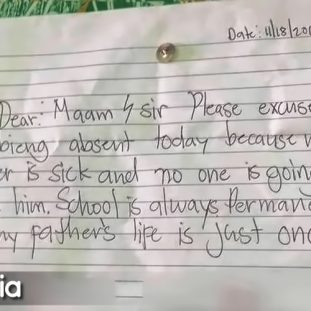 Date: 11/18/20
Dear: Maam / sir Please excuse
bieng absent today because
er is sick and no one is goin
him. School is always Perman
my father's life is just on
ia